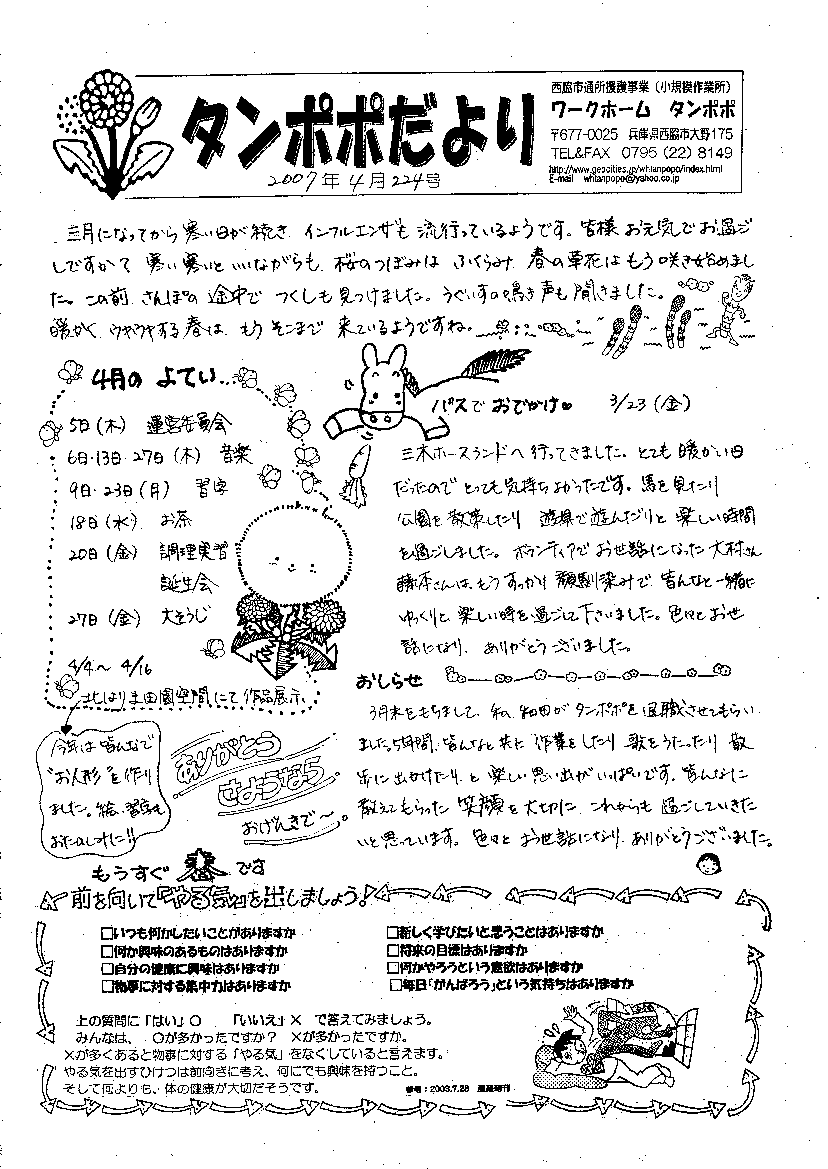 タンポポだより
2007年4月224号
西脇市通所援護事業（小規模作業所）
ワークホーム　タンポポ
〒677-0025　兵庫県西脇市大野175
TEL&FAX　0795（22）8149
http://www.geocities.jp/whtanpopo/index.html
E-mail　whtanpopo@yahoo.co.jp
三月になってから寒い日が続き、インフルエンザも流行っているようです。皆様お元気でお過ご
しですか？寒い寒いといいながらも、桜のつぼみはふくらみ、春の草花はもう咲き始めまし
た。この前、さんぽの途中でつくしも見つけました。うぐいすの鳴き声も聞きました。
暖かく、ウキウキする春は、もうそこまで来ているようですね。
4月のよてい...
5日（木）　運営委員会
6日・13日・27日（木）　音楽
9日・23日（月）　習字
18日（水）　お茶
20日（金）　調理実習
誕生会
27日（金）　大そうじ
4/4～4/16
北はりま田園空間にて作品展示
今年は皆んなで
“お人形”を作り
ました。絵、習字も
おたのしみに!!
バスでおでかけ♥　3/23（金）
三木ホースランドへ行ってきました。とても暖かい日
だったのでとっても気持ちよかったです。馬を見たり
公園を散策したり、遊具で遊んだりと楽しい時間
を過ごしました。ボランティアでお世話になった大村さん
藤本さんは、もうすっかり顔馴染みで、皆んなと一緒に
ゆっくりと楽しい時を過ごして下さいました。色々とお世
話になり、ありがとうございました。
おしらせ
3月末をもちまして、私、和田がタンポポを退職させてもらい
ました。5年間、皆んなと共に作業をしたり、歌をうたったり、散
歩に出かけたりと楽しい思い出がいっぱいです。皆んなに
教えてもらった笑顔を大切に、これからも過ごしていきた
いと思っています。色々とお世話になり、ありがとうございました。
ありがとう
さようなら
おげんきで～。
もうすぐ春です
前を向いて「やる気」を出しましょう！
□いつも何かしたいことがありますか
□何か興味のあるものはありますか
□自分の健康に興味はありますか
□物事に対する集中力はありますか
□新しく学びたいと思うことはありますか
□将来の目標はありますか
□何かやろうという意欲はありますか
□毎日「がんばろう」という気持ちはありますか
上の質問に「はい」○　「いいえ」×　で答えてみましょう。
みんなは、○が多かったですか？　×が多かったですか。
×が多くあると物事に対する「やる気」をなくしていると言えます。
やる気を出すひけつは前向きに考え、何にでも興味を持つこと。
そして何よりも、体の健康が大切だそうです。
参考：2003.7.28